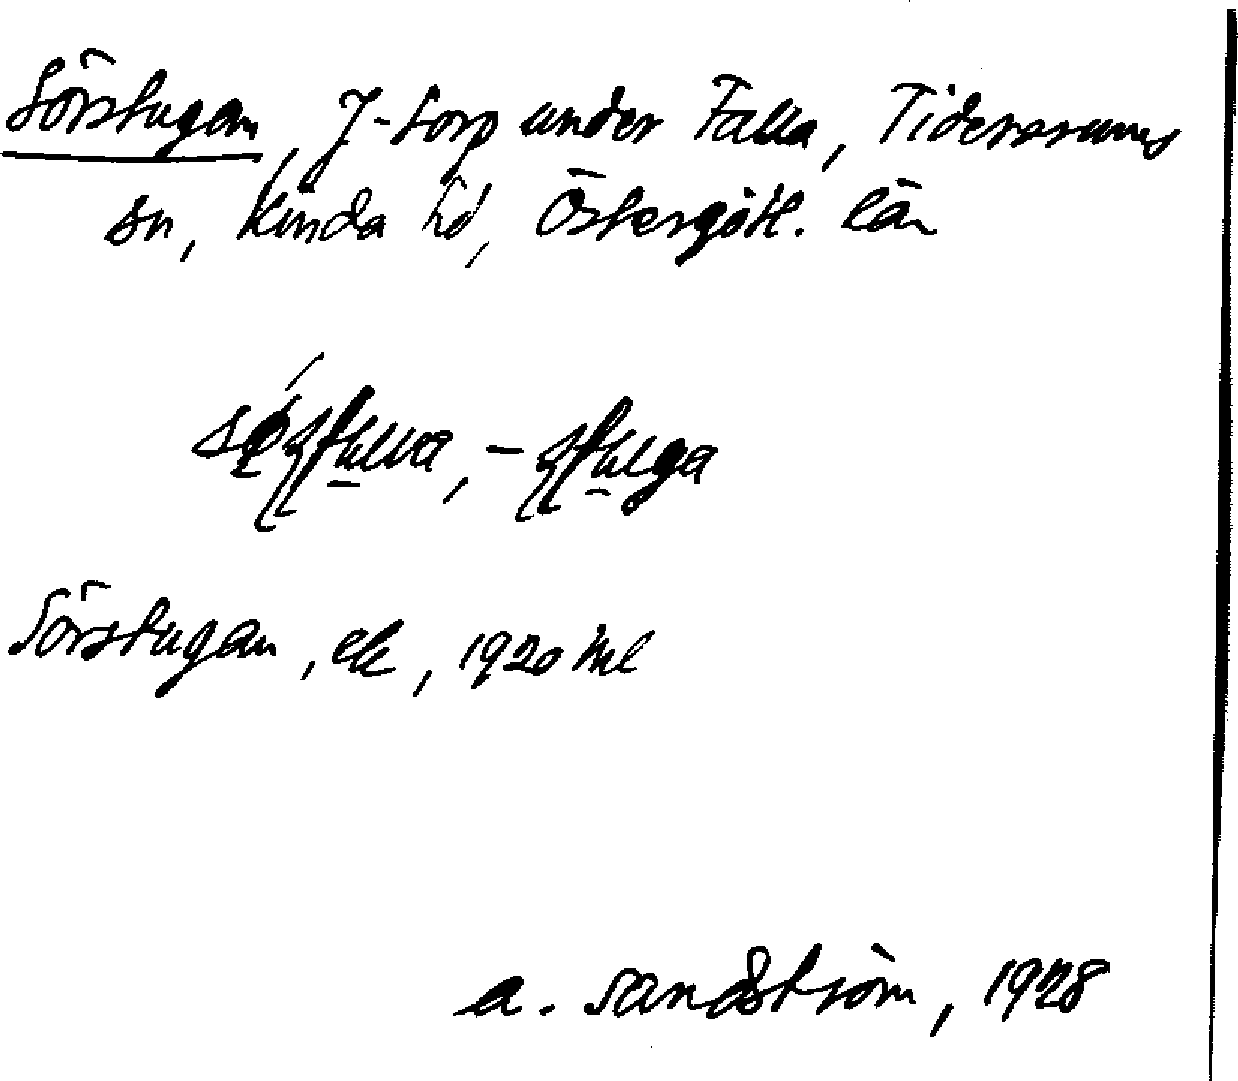 Sörstugan, J-torp under Falla, Tidersrums
sn, Kinda hd, Östergötl. län
Sörstugan, ek, 1920 ml
A. Sandström, 1928